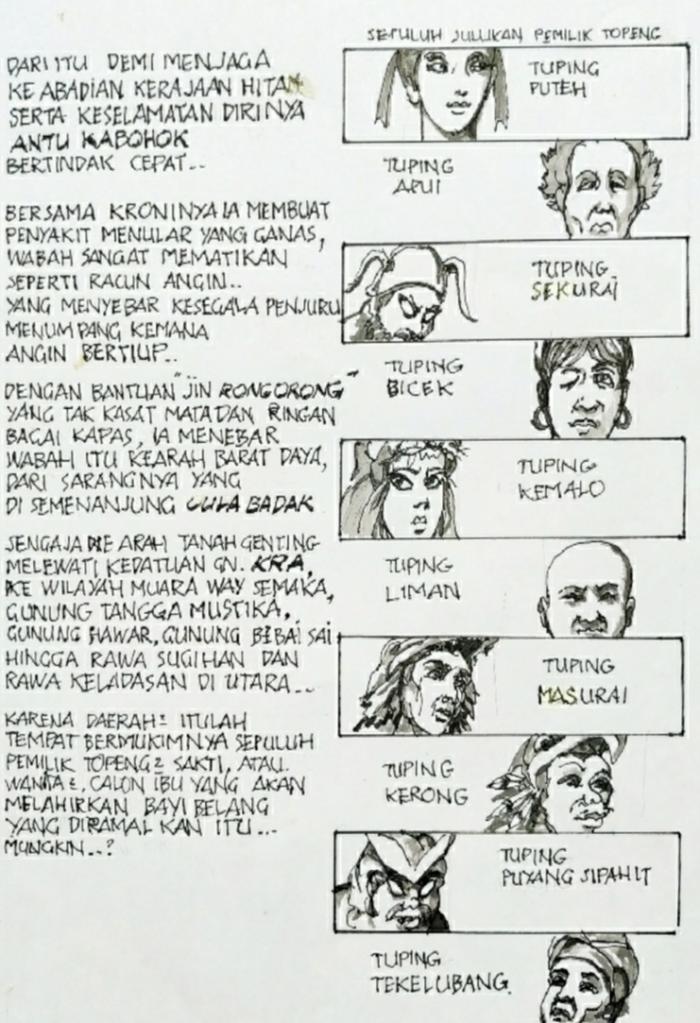 DARI ITU DEMI MENJAGA
KE ABADIAN KERAJAAN HITAM
SERTA KESELAMATAN DIRINYA
ANTU KABOHOK
BERTINDAK CEPAT...
BERSAMA KRONINYA IA MEMBUAT
PENYAKIT MENULAR YANG GANAS,
WABAH SANGAT MEMATIKAN
SEPERTI RACUN ANGIN..
YANG MENYEBAR KESEGALA PENJURU
MENUMPANG KEMANA
ANGIN BERTIUP...
DENGAN BANTUAN "JIN RONGORONG"
YANG TAK KASAT MATA DAN RINGAN
BAGAI KAPAS, IA MENEBAR
WABAH ITU KEARAH BARAT DAYA,
DARI SARANGNYA YANG
DI SEMENANJUNG CULA BADAK
SENGAJA KE ARAH TANAH GENTING
MELEWATI KEDATUAN GN. KRA,
KE WILAYAH MUARA WAY SEMAKA,
GUNUNG TANGGA MUSTIKA,
GUNUNG HAWAR, GUNUNG BEBAI SAI
HINGGA RAWA SUGIHAN DAN
RAWA KELADASAN DI UTARA...
KARENA DAERAH² ITULAH
TEMPAT BERMUKIMNYA SEPULUH
PEMILIK TOPENG² SAKTI, ATAU
WANITA², CALON IBU YANG AKAN
MELAHIRKAN BAYI BELANG
YANG DIRAMAL KAN ITU...
MUNGKIN..?
SEPULUH JULUKAN PEMILIK TOPENG
TUPING
PUTEH
TUPING
APUI
TUPING
SEKURAI
TUPING
BICEK
TUPING
KEMALO
TUPING
LIMAN
TUPING
MASURAI
TUPING
KERONG
TUPING
PUYANG SIPAHIT
TUPING
TEKELUBANG.